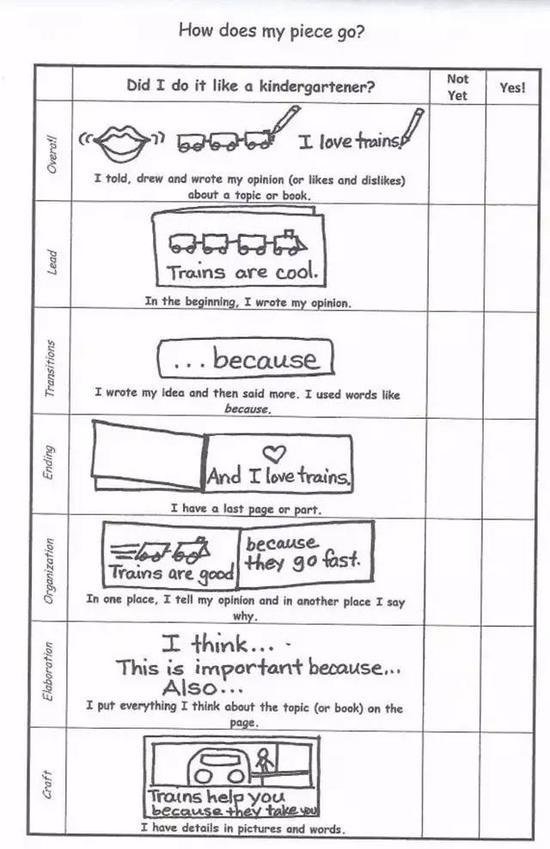 How does my piece go?
Did I do it like a kindergartener?
Not
Yet
Yes!
Overall
I love trains.
I told, drew and wrote my opinion (or likes and dislikes)
about a topic or book.
Lead
Trains are cool.
In the beginning, I wrote my opinion.
Transitions
...because
I wrote my idea and then said more. I used words like
because.
Ending
And I love trains.
I have a last page or part.
Organization
Trains are good
because
they go fast.
In one place, I tell my opinion and in another place I say
why.
Elaboration
I think...
This is important because...
Also...
I put everything I think about the topic (or book) on the
page.
Craft
Trains help you
because they take you
I have details in pictures and words.